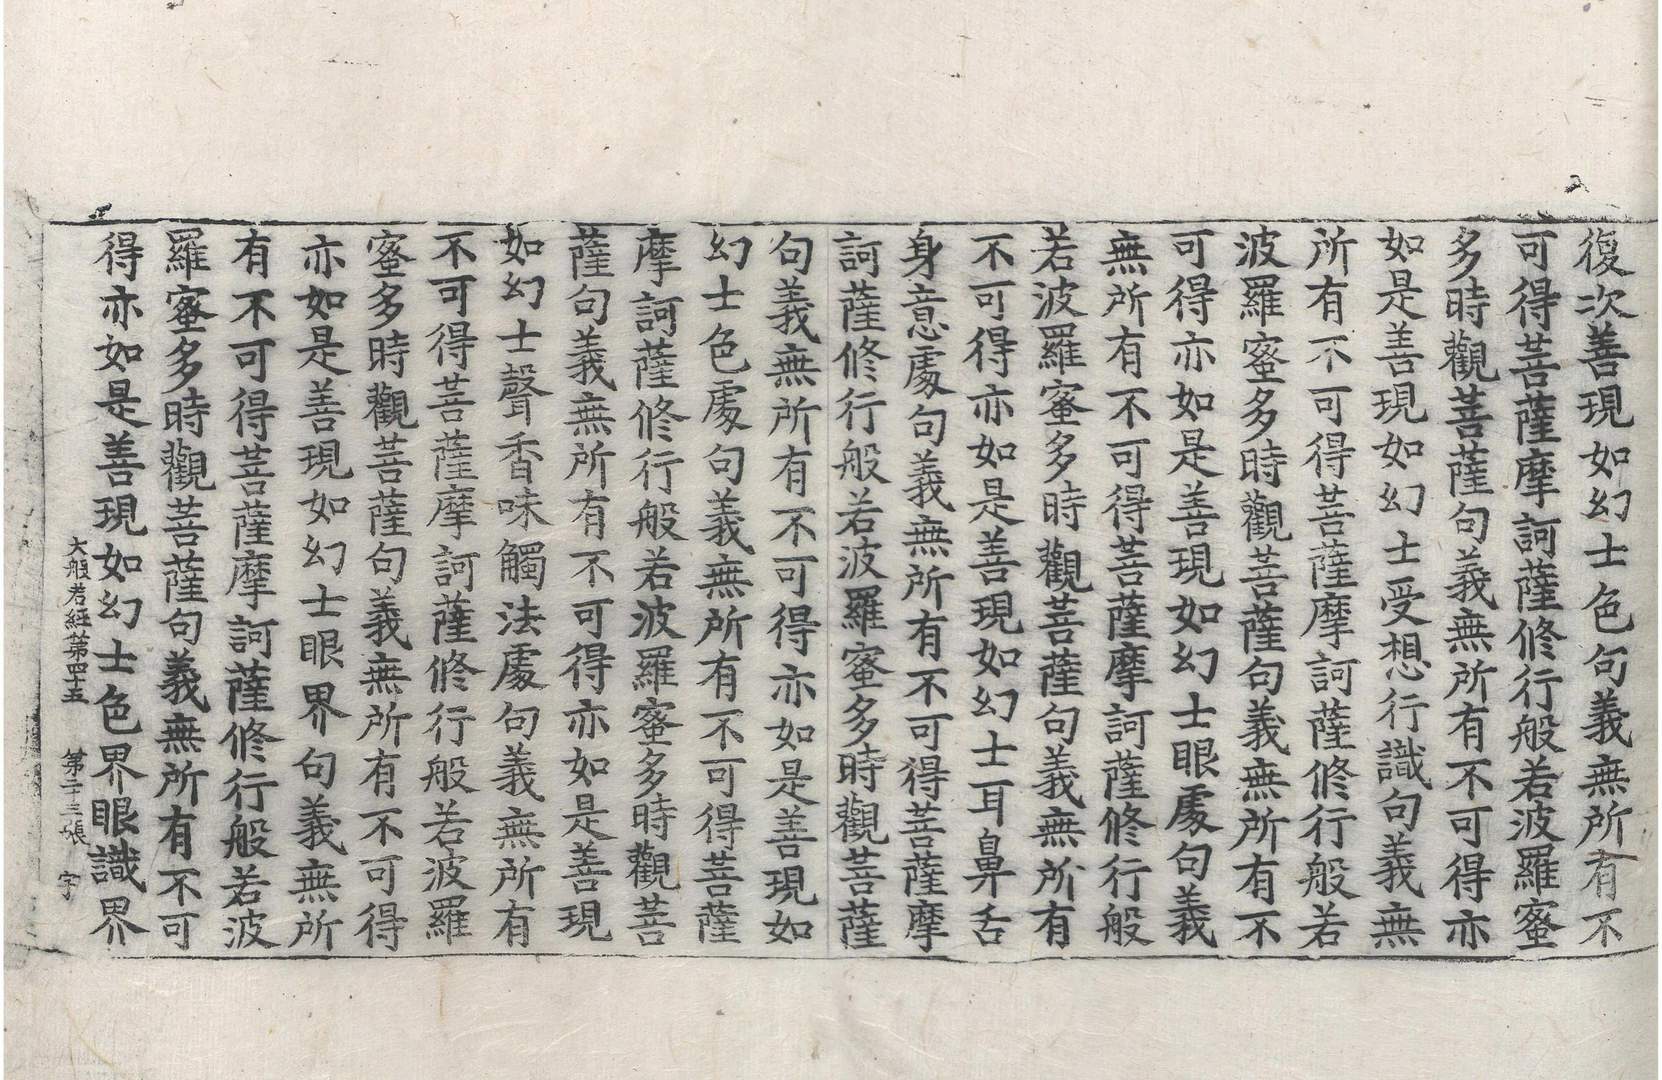 復次善現如幻士色句義無所有不
可得菩薩摩訶薩修行般若波羅蜜
多時觀菩薩句義無所有不可得亦
如是善現如幻士受想行識句義無
所有不可得菩薩摩訶薩修行般若
波羅蜜多時觀菩薩句義無所有不
可得亦如是善現如幻士眼處句義
無所有不可得菩薩摩訶薩修行般
若波羅蜜多時觀菩薩句義無所有
不可得亦如是善現如幻士耳鼻舌
身意處句義無所有不可得菩薩摩
訶薩修行般若波羅蜜多時觀菩薩
句義無所有不可得亦如是善現如
幻士色處句義無所有不可得菩薩
摩訶薩修行般若波羅蜜多時觀菩
薩句義無所有不可得亦如是善現
如幻士聲香味觸法處句義無所有
不可得菩薩摩訶薩修行般若波羅
蜜多時觀菩薩句義無所有不可得
亦如是善現如幻士眼界句義無所
有不可得菩薩摩訶薩修行般若波
羅蜜多時觀菩薩句義無所有不可
得亦如是善現如幻士色界眼識界
大般若經第四十五 第二十三張 字